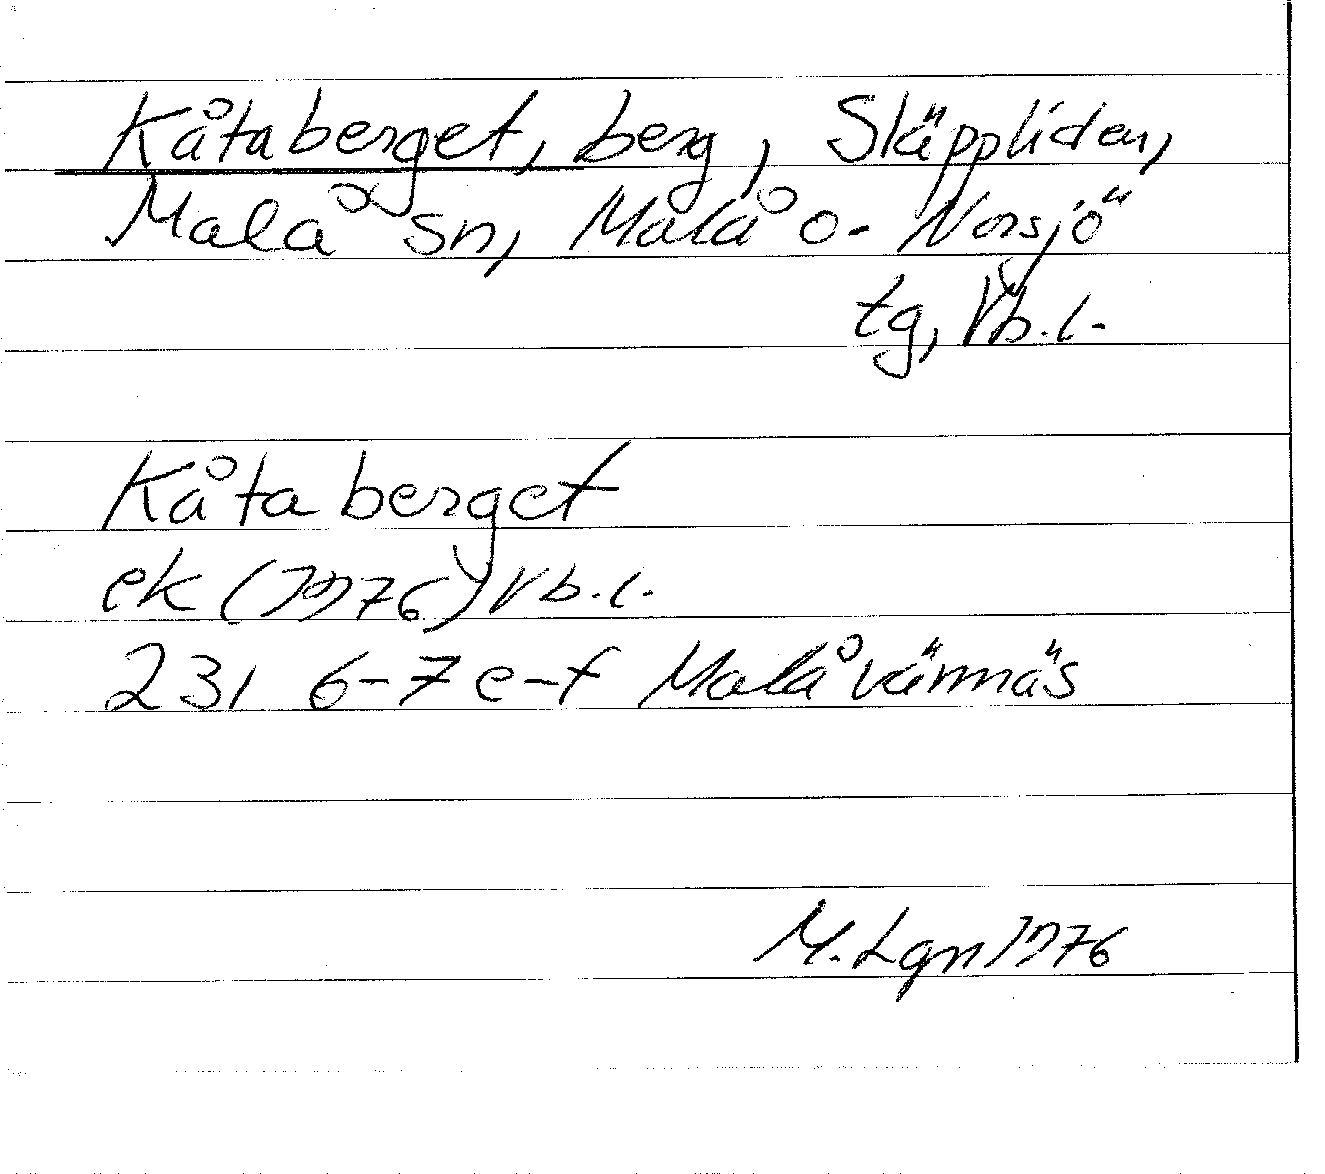 Kåtaberget, berg, Släppliden,
Malå sn, Malå o. Norsjö
tg, Vb.l.
Kåtaberget
ek (1976) Vb.l.
231 6-7 e-f Malåvännäs
M. Lgn 1976